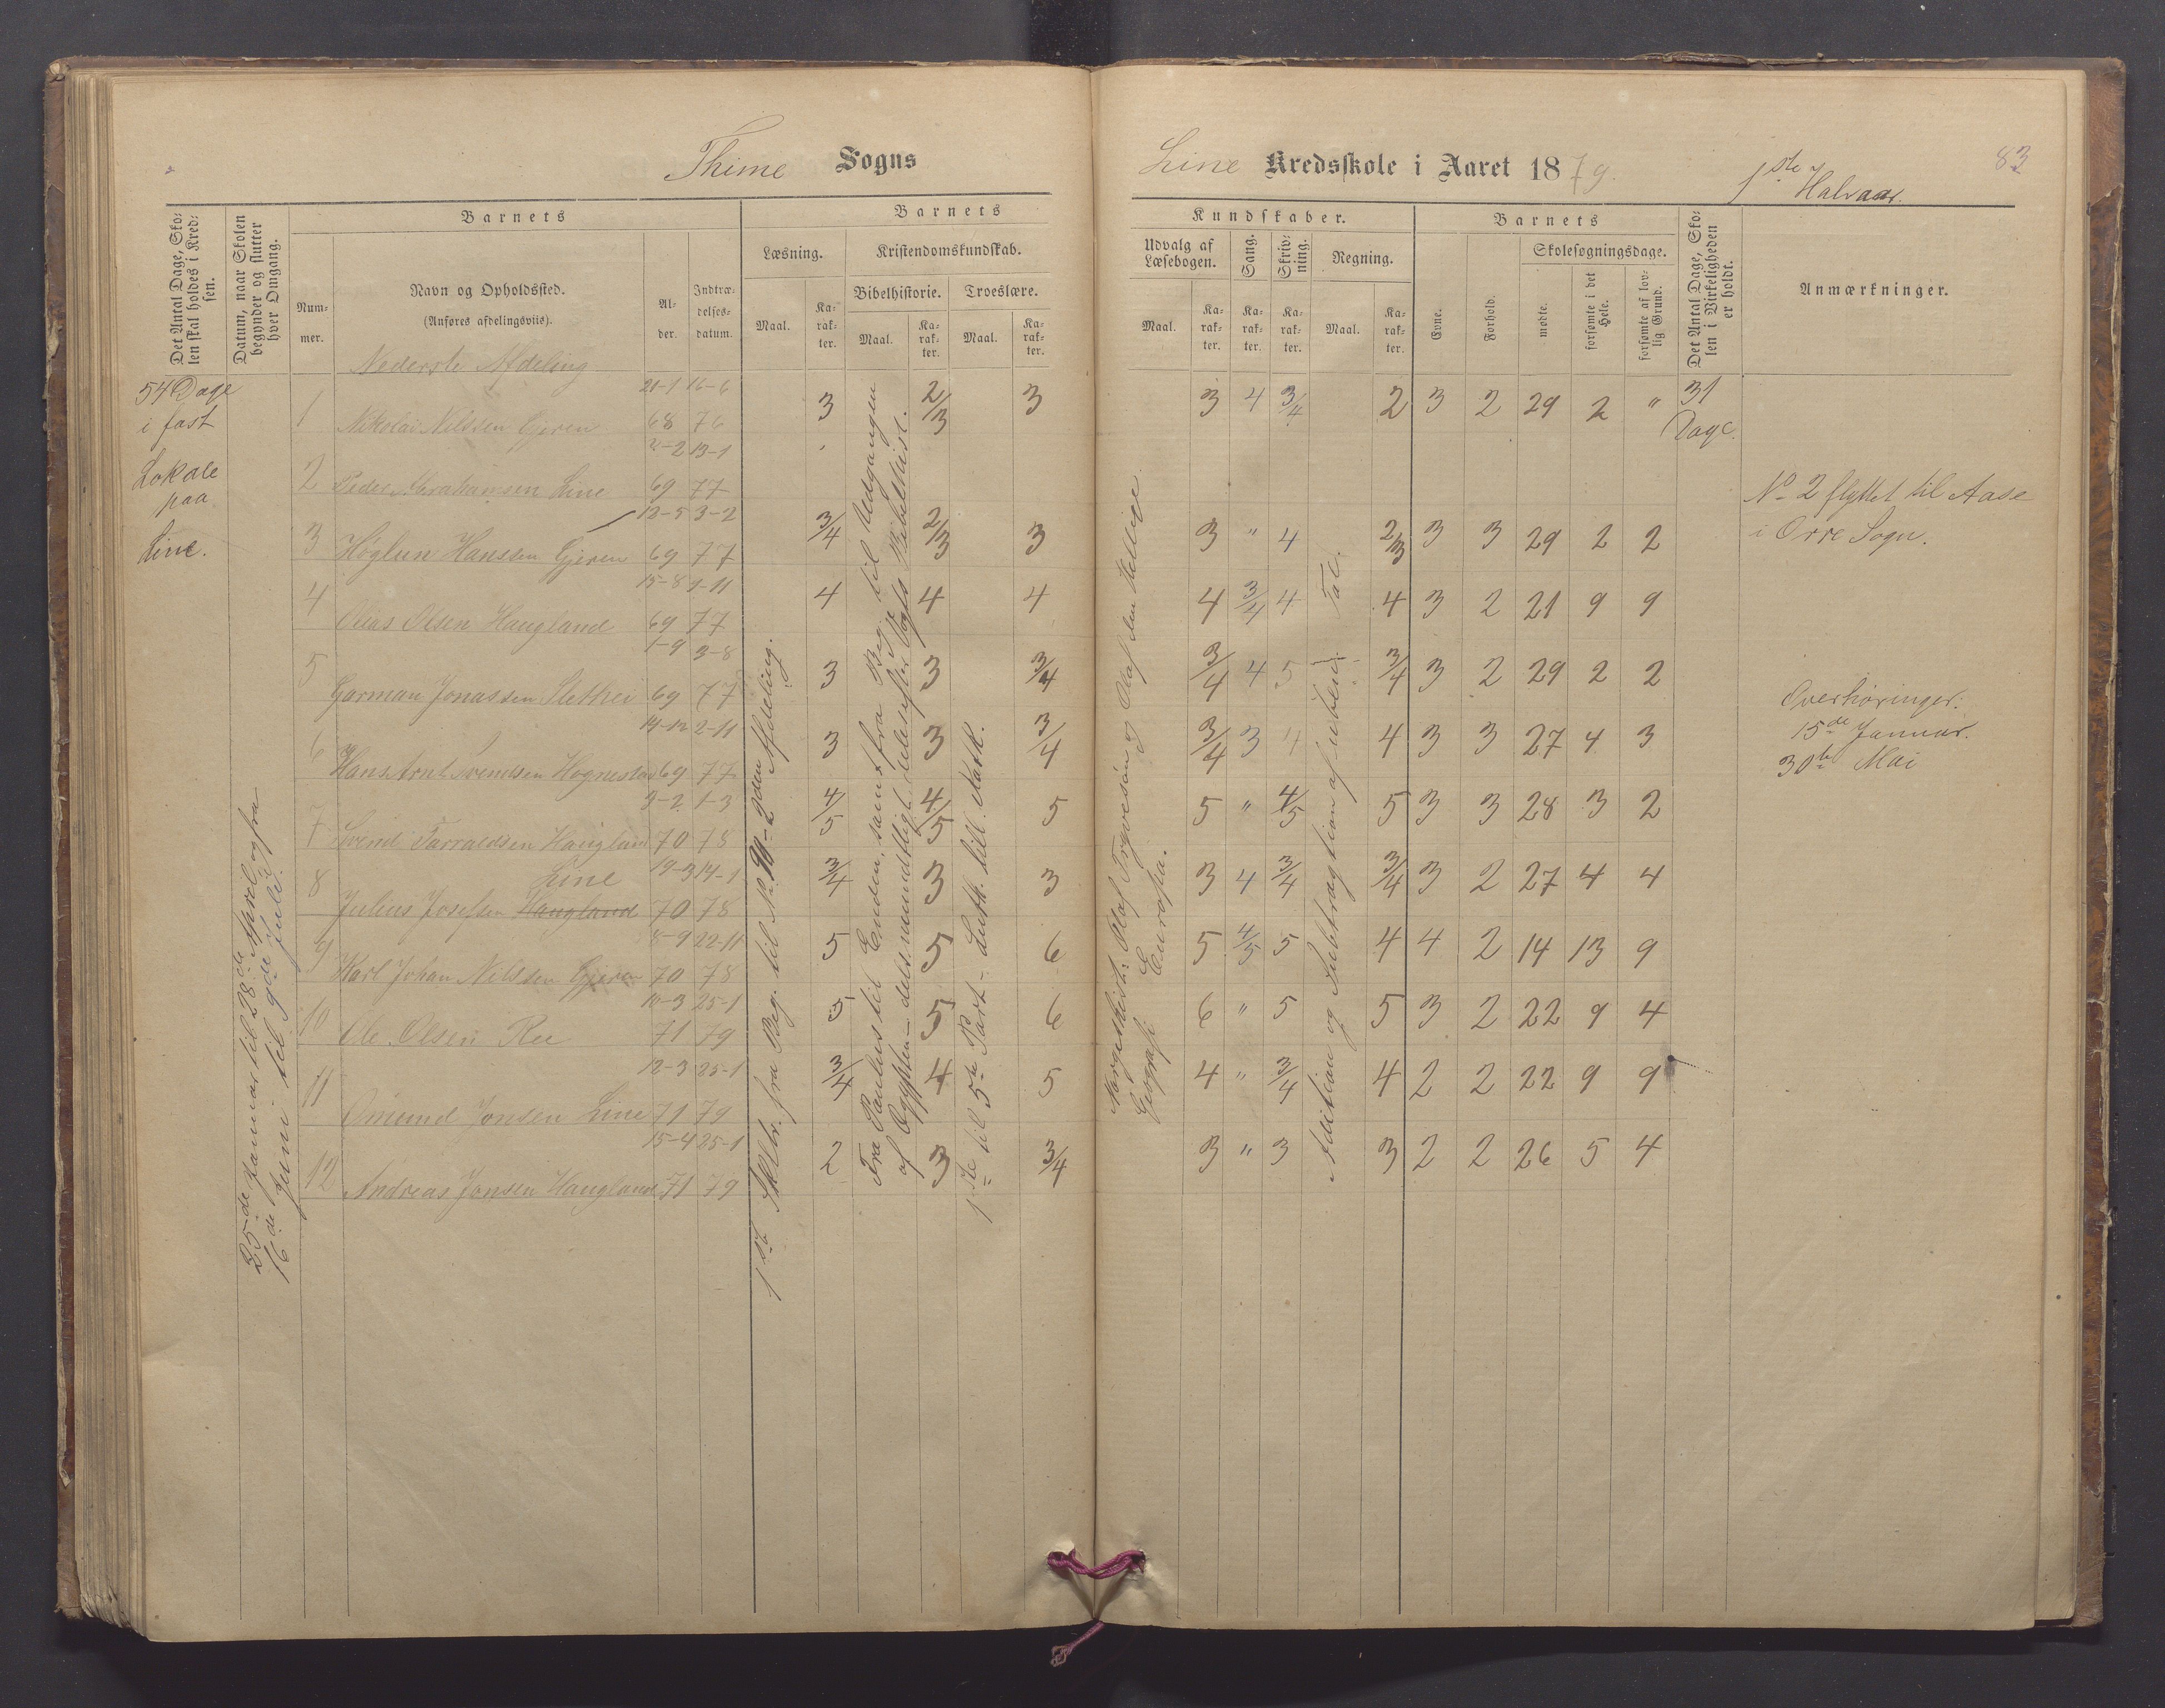 Thime Sogns
Line Kredsskole i Aaret 1879.
1ste Halvaar.
83
Det Antal Dage, Skolen skal holdes i Kredsen.
Datum, naar Skolen begynder og slutter hver Omgang.
Barnets
Nummer.
Navn og Opholdssted.
(Anføres afdelingsviis).
Alder.
Indtrædelsesdatum.
Barnets
Læsning.
Maal.
Karakter.
Kristendomskundskab.
Bibelhistorie.
Maal.
Karakter.
Troeslære.
Maal.
Karakter.
Kundskaber.
Udvalg af Læsebogen.
Maal.
Karakter.
Sang.
Karakter.
Skrivning.
Karakter.
Regning.
Maal.
Karakter.
Barnets
Evne.
Forhold.
Skolesøgningsdage.
mødte.
forsømte i det Hele.
forsømte af lovlig Grund.
Det Antal Dage, Skolen i Virkeligheden er holdt.
Anmærkninger.
Nederste Afdeling
54 Dage
i fast
Lokale
paa
Line.
25de Januar til 28de April og fra
16de Juni til 9de Juli.
1 Nikolai Nilssen Gjeren 21-1 68 16-6 76 3 2/3 3 3 4 3/4 2 3 2 29 2 " 31 Dage.
2 Peder Abrahamsen Line 69 13-1 77
3 Høglun Hanssen Gjeren 12-5 69 3-2 77 3/4 2/3 3 3 " 4 2/3 3 3 29 2 2
4 Olias Olsen Haugland 15-8 69 1-11 77 4 4 4 4 3/4 4 4 3 2 21 9 9
5 Garman Jonassen Slethei 1-9 69 3-8 77 3 3 3/4 3/4 4 5 3/4 3 2 29 2 2
6 Hans Arnt Svendsen Hognestad 14-12 69 2-11 77 3 3 3/4 3/4 3 4 4 3 3 27 4 3
7 Svend Tarraldsen Haugland 9-2 70 1-3 78 4/5 4/5 5 5 " 4/5 5 3 3 28 3 2
8 Julius Josefsen Haugland Line 19-3 70 14-1 78 3/4 3 3 3 4 3/4 3/4 3 2 27 4 4
9 Karl Johan Nilssen Gjeren 8-9 70 22-11 78 5 5 6 5 4/5 5 4 4 2 14 13 9
10 Ole Olsen Ree 10-3 71 25-1 79 5 5 6 6 " 5 5 3 2 22 9 4
11 Omund Jonsen Line 12-3 71 25-1 79 3/4 4 5 4 " 3/4 4 2 2 22 9 9
12 Andreas Jonsen Haugland 15-4 71 25-1 79 2 3 3/4 3 " 3 3 2 2 26 5 4
fra Beg. til Afdeling.
Fra Paulus til Enden, samt fra Beg. til Udgangen
af Ægypten – dels mundtligt dels efter Vogts Bibelhist.
1ste til 5te Part – Luth. lill. Kate.
Norgeshist: Olaf Trygvesøn og Olaf den Hellige.
Geografi Europa.
Addition og Subtragtion af ubens. Tal.
No 2 flyttet til Aase
i Orre Sogn.
Overhøringer:
15de Januar.
30te Mai